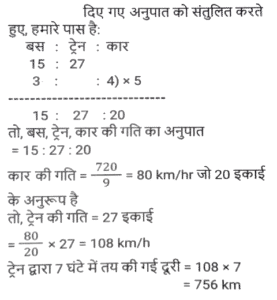 दिए गए अनुपात को संतुलित करते
हुए, हमारे पास है:
बस : ट्रेन : कार
15 : 27
3 : : 4) × 5
--------------------------------
15 : 27 : 20
तो, बस, ट्रेन, कार की गति का अनुपात
= 15 : 27 : 20
कार की गति = 720/9 = 80 km/hr जो 20 इकाई
के अनुरूप है
तो, ट्रेन की गति = 27 इकाई
= 80/20 × 27 = 108 km/h
ट्रेन द्वारा 7 घंटे में तय की गई दूरी = 108 × 7
= 756 km